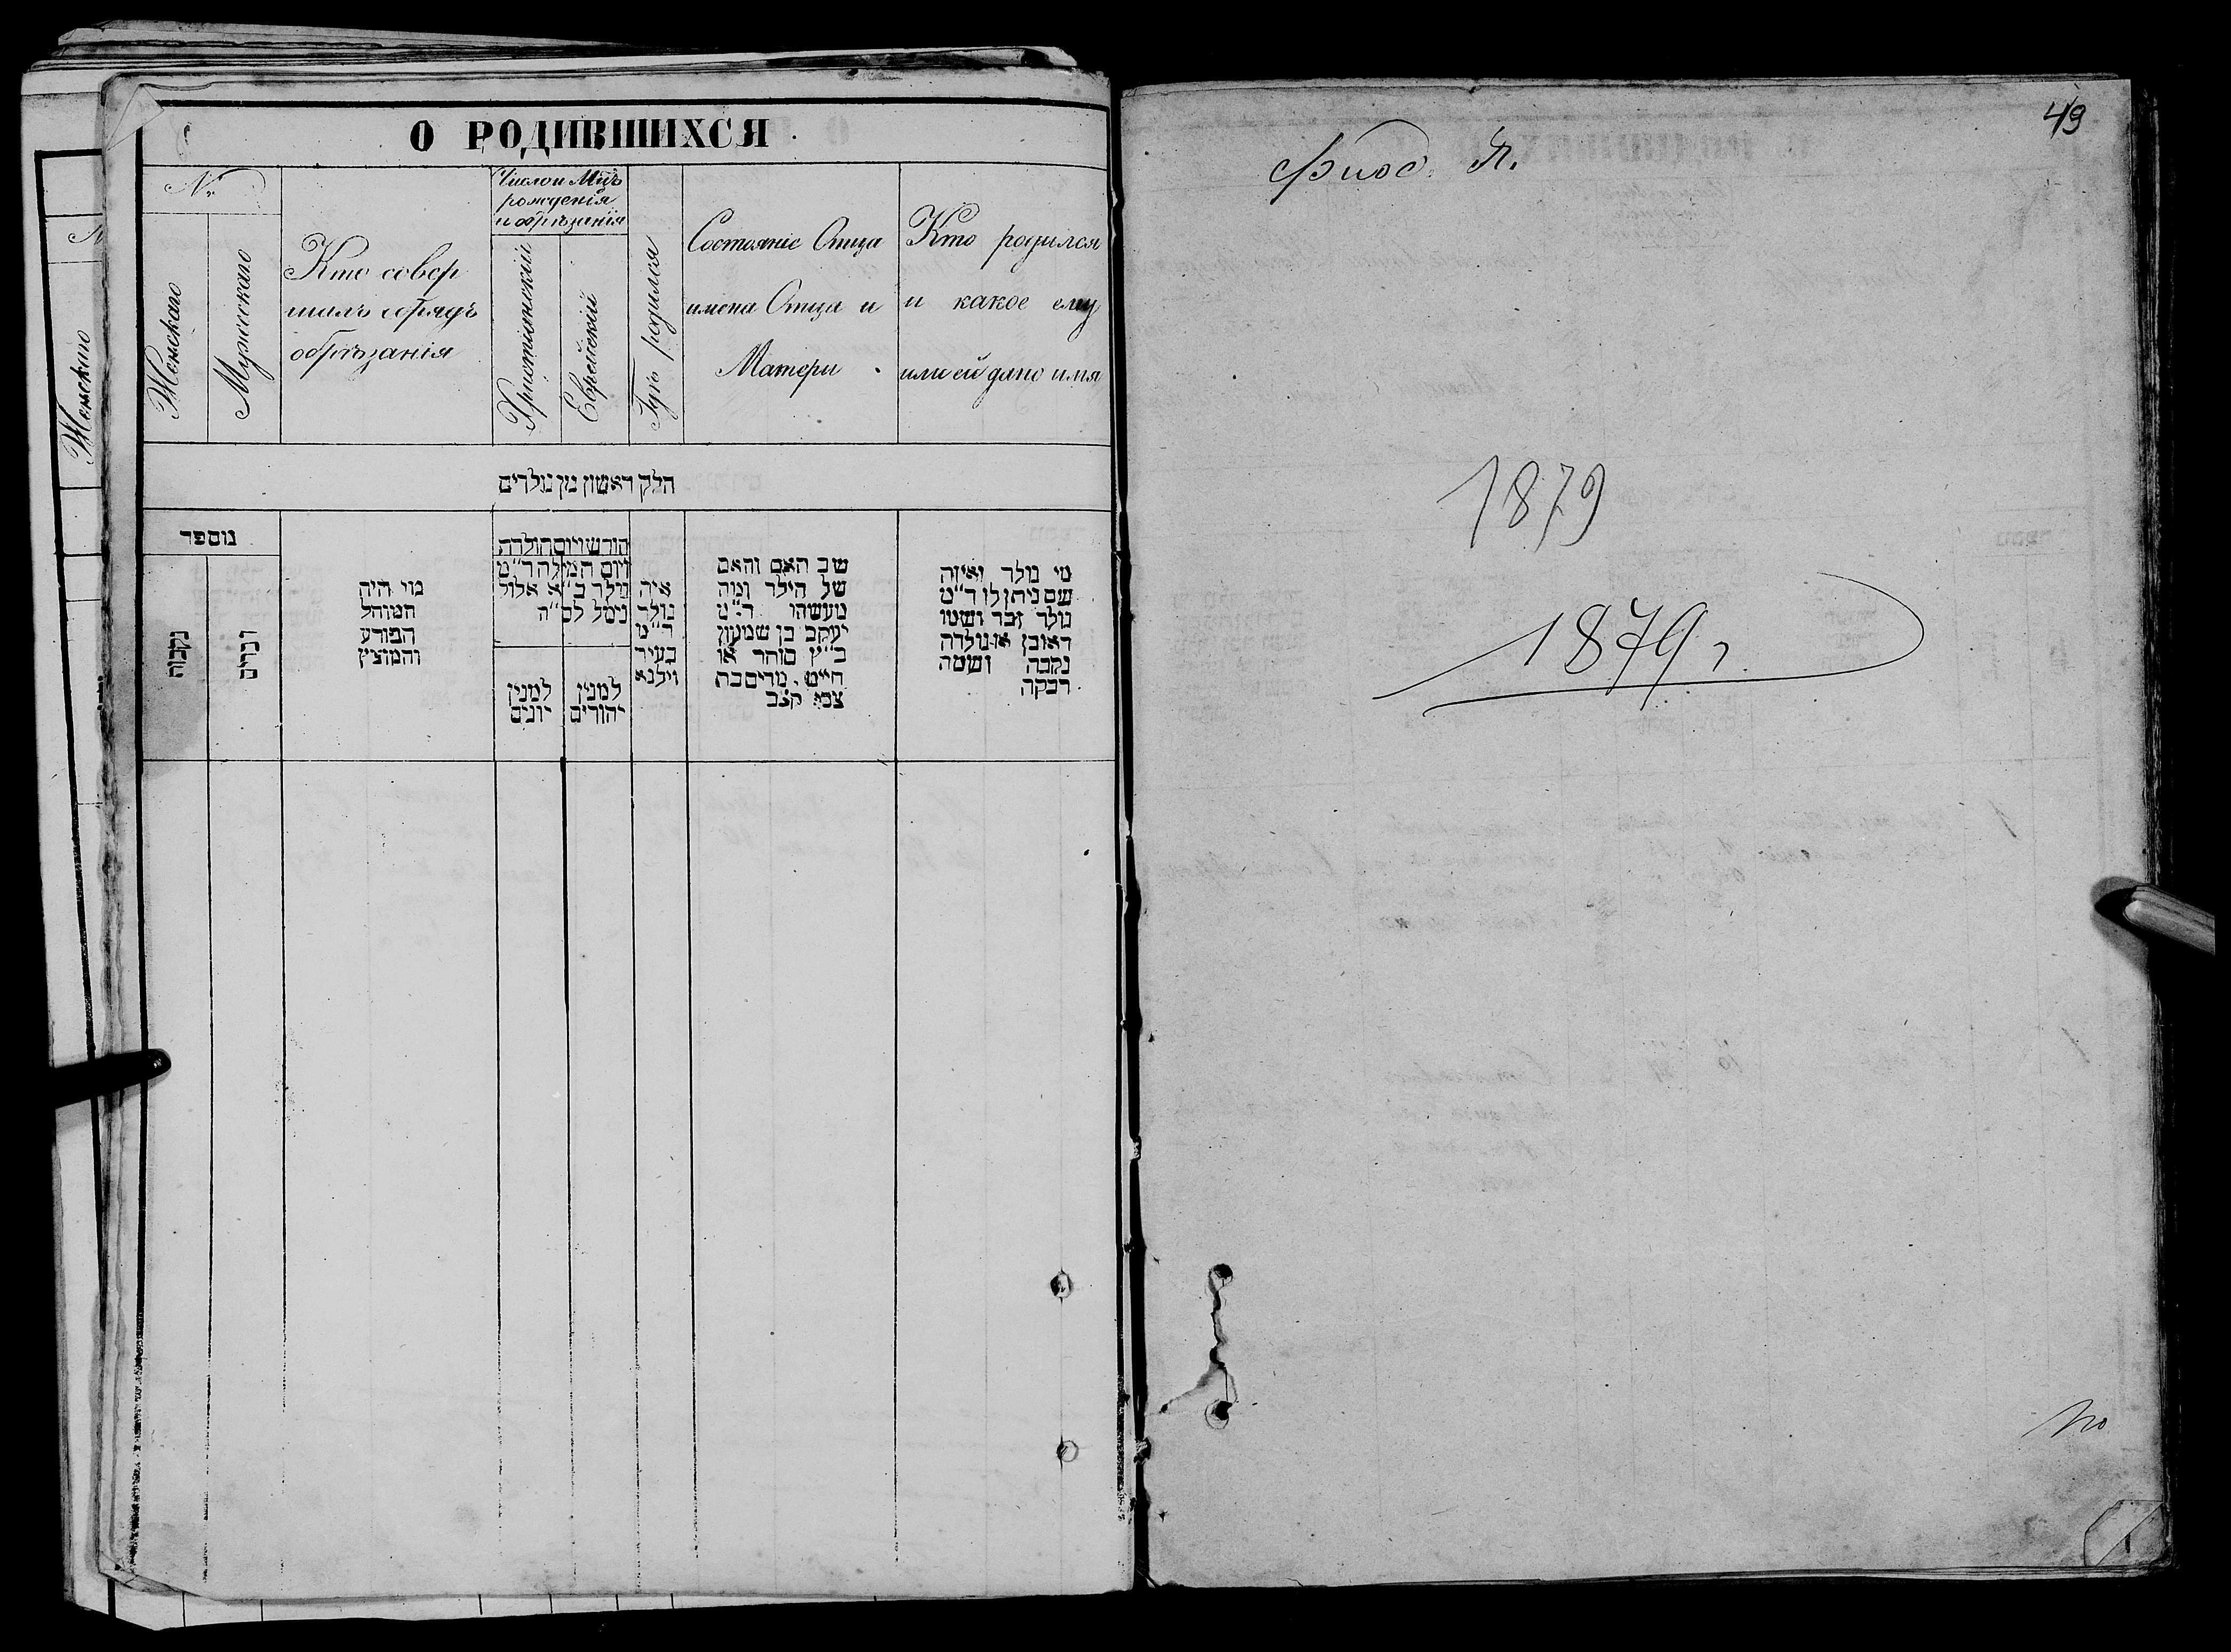 О РОДИВШИХСЯ
№
Женскаго
Мужескаго
Кто совер
шалъ обрядъ
обрѣзанія
Число и Мцъ
рожденія
и обрѣзанія
Христіанскій
Еврейскій
Гдѣ родился
Состояніе Отца
имена Отца и
Матери
Кто родился
и какое ему
или ей дано имя
חלק ראשון מן נולדים
מספר
נקבות
זכרים
מי היה
המוהל
הפורע
והמוציץ
חודש ויום הולדת
ויום המילה ד״מ
נולד ב״א אלול
נימל לס״ה
למנין
יונים
למנין
יהודים
איה
נולד
ד״מ
בעיר
וילנא
שב האם והאם
של הילד ומה
מעשהו ד״מ
יעקב בן שמעון
כ״ץ סוחר או
חייט. מרים בת
צבי קצב
מי נולד ואיזה
שם ניתן לו ד״מ
נולד זכר ושמו
ראובן או נולדה
נקבה ושמה
רבקה
Женскаго
49
1879
1879 г.
1